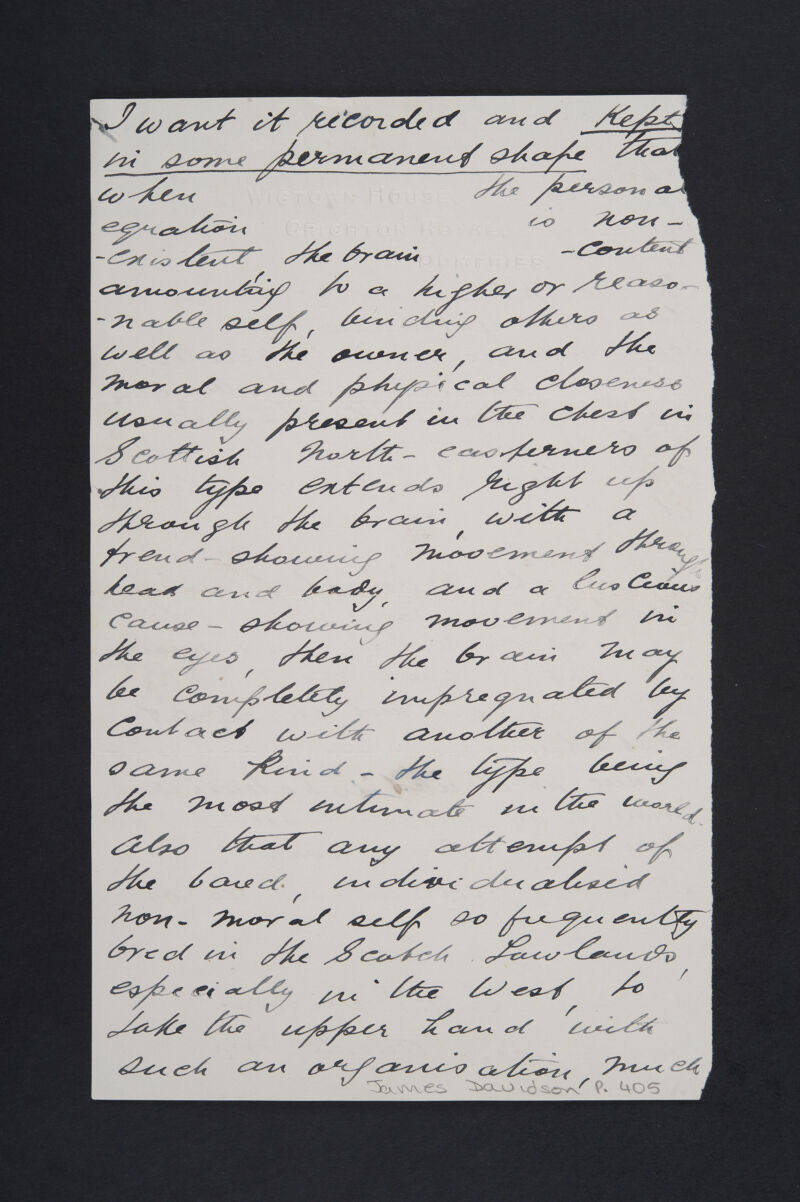 I want it recorded and Kept
in some permanent shape that
when the personal
WIGTOWN HOUSE,
equation is non-
CRICHTON ROYAL,
-existent, the brain -content
DUMFRIES
amounting to a higher or reaso-
-nable self, binding others as
well as the owner, and the
moral and physical closeness
usually present in the chest in
Scottish North-easterners of
this type extends right up
through the brain, with a
trend-showing movement through
head and body, and a luscious
cause-showing movement in
the eyes, then the brain may
be completely impregnated by
contact with another of the
same kind - the type being
the most intimate in the world.
Also that any attempt of
the bared, individualised
non-moral self so frequently
bred in the Scotch Lowlands,
especially in the West, to
take the upper hand with
such an organisation, much
James Davidson P. 405